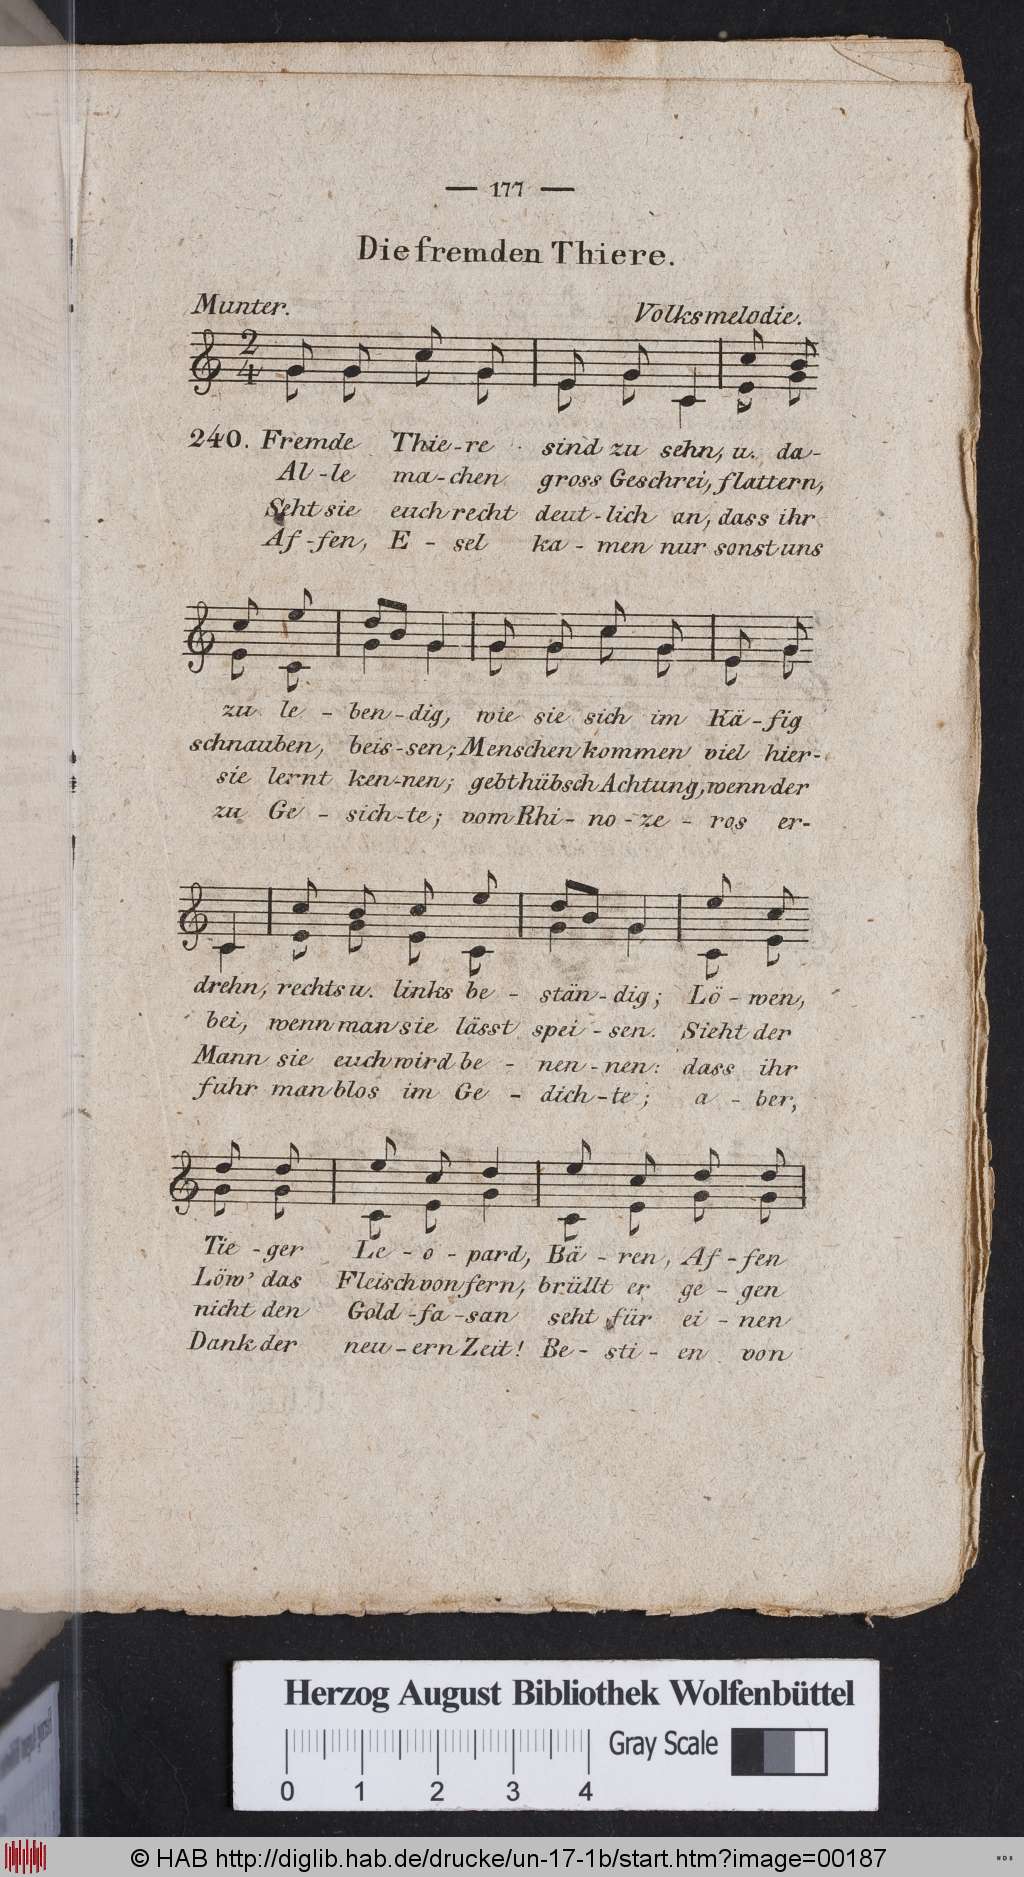 — 177 —
Die fremden Thiere.
Munter. Volksmelodie.
2
4
240. Fremde Thie-re sind zu sehn, u. da-
Al-le ma-chen gross Geschrei, flattern,
Seht sie euch recht deut-lich an, dass ihr
Af-fen, E-sel ka-men nur sonst uns
zu le-ben-dig, wie sie sich im Kä-fig
schnauben, beis-sen; Menschen kommen viel hier-
sie lernt ken-nen; gebt hübsch Achtung, wenn der
zu Ge-sich-te; vom Rhi-no-ze-ros er-
drehn, rechts u. links be-stän-dig; Lö-wen,
bei, wenn man sie lässt spei-sen. Sieht der
Mann sie euch wird be-nen-nen: dass ihr
fuhr man blos im Ge-dich-te; a-ber,
Tie-ger Le-o-pard, Bä-ren, Af-fen
Löw' das Fleisch von fern, brüllt er ge-gen
nicht den Gold-fa-san seht für ei-nen
Dank der neu-ern Zeit! Be-sti-en von
Herzog August Bibliothek Wolfenbüttel
Gray Scale
0 1 2 3 4
© HAB http://diglib.hab.de/drucke/un-17-1b/start.htm?image=00187